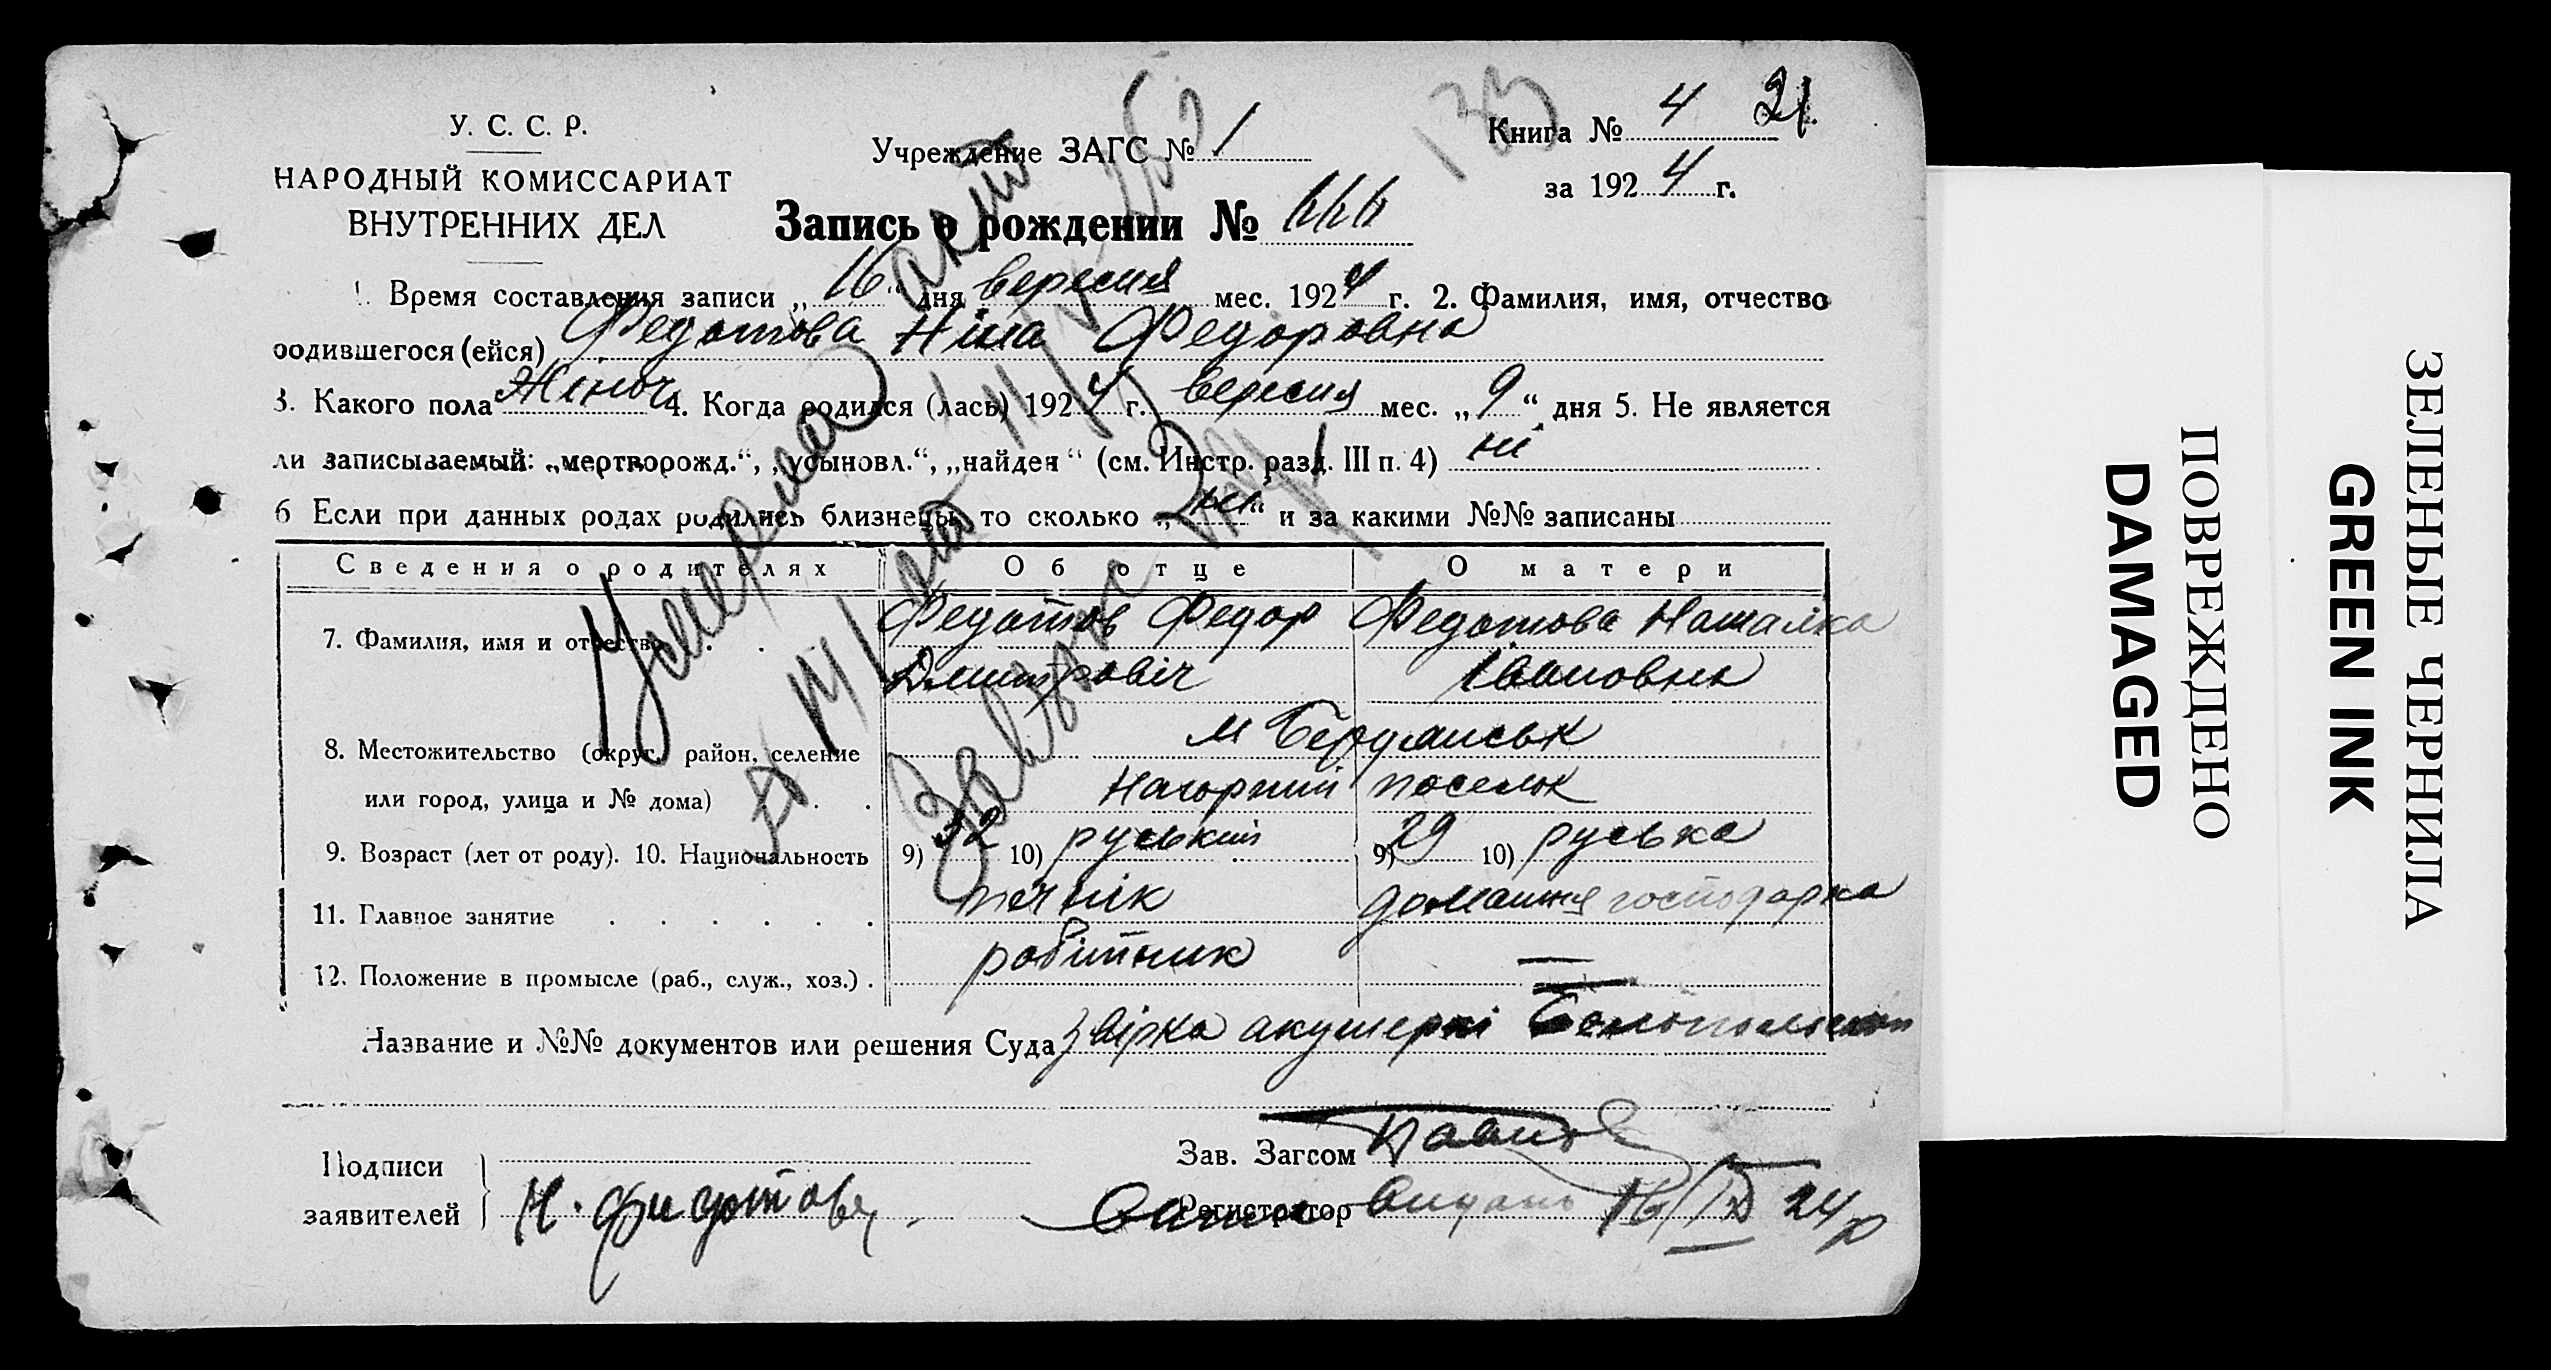 У. С. С. Р.
НАРОДНЫЙ КОМИССАРИАТ
ВНУТРЕННИХ ДЕЛ
Учреждение ЗАГС № 1
133
Книга № 4 21
за 1924 г.
Запись о рождении № 666
1. Время составления записи „16“ дня вересня мес. 1924 г. 2. Фамилия, имя, отчество
родившегося (ейся) Федотова Ніна Федоровна
3. Какого пола Жіноч. 4. Когда родился (лась) 1924 г. вересня мес. „9“ дня 5. Не является
ли записываемый: „мертворожд.“, „усыновл.“, „найден“ (см. Инстр. разд. III п. 4) ні
6 Если при данных родах родились близнецы, то сколько „ні“ и за какими №№ записаны
Умерла акт
Сведения о родителях Об отце О матери
7. Фамилия, имя и отчество Федотов Федор Федотова Наталка
Дмитровіч Івановна
8. Местожительство (округ, район, селение м Бердянськ
или город, улица и № дома) Нагорний поселок
9. Возраст (лет от роду). 10. Национальность 9) 32 10) руський 9) 29 10) руська
11. Главное занятие пічнік домашня господарка
12. Положение в промысле (раб., служ., хоз.) робітник —
Название и №№ документов или решения Суда звірка акушеркі
Подписи
заявителей Н. Федотова
Зав. Загсом
Регистратор 16/IX 24 р
ПОВРЕЖДЕНО
DAMAGED
ЗЕЛЕНЫЕ ЧЕРНИЛА
GREEN INK